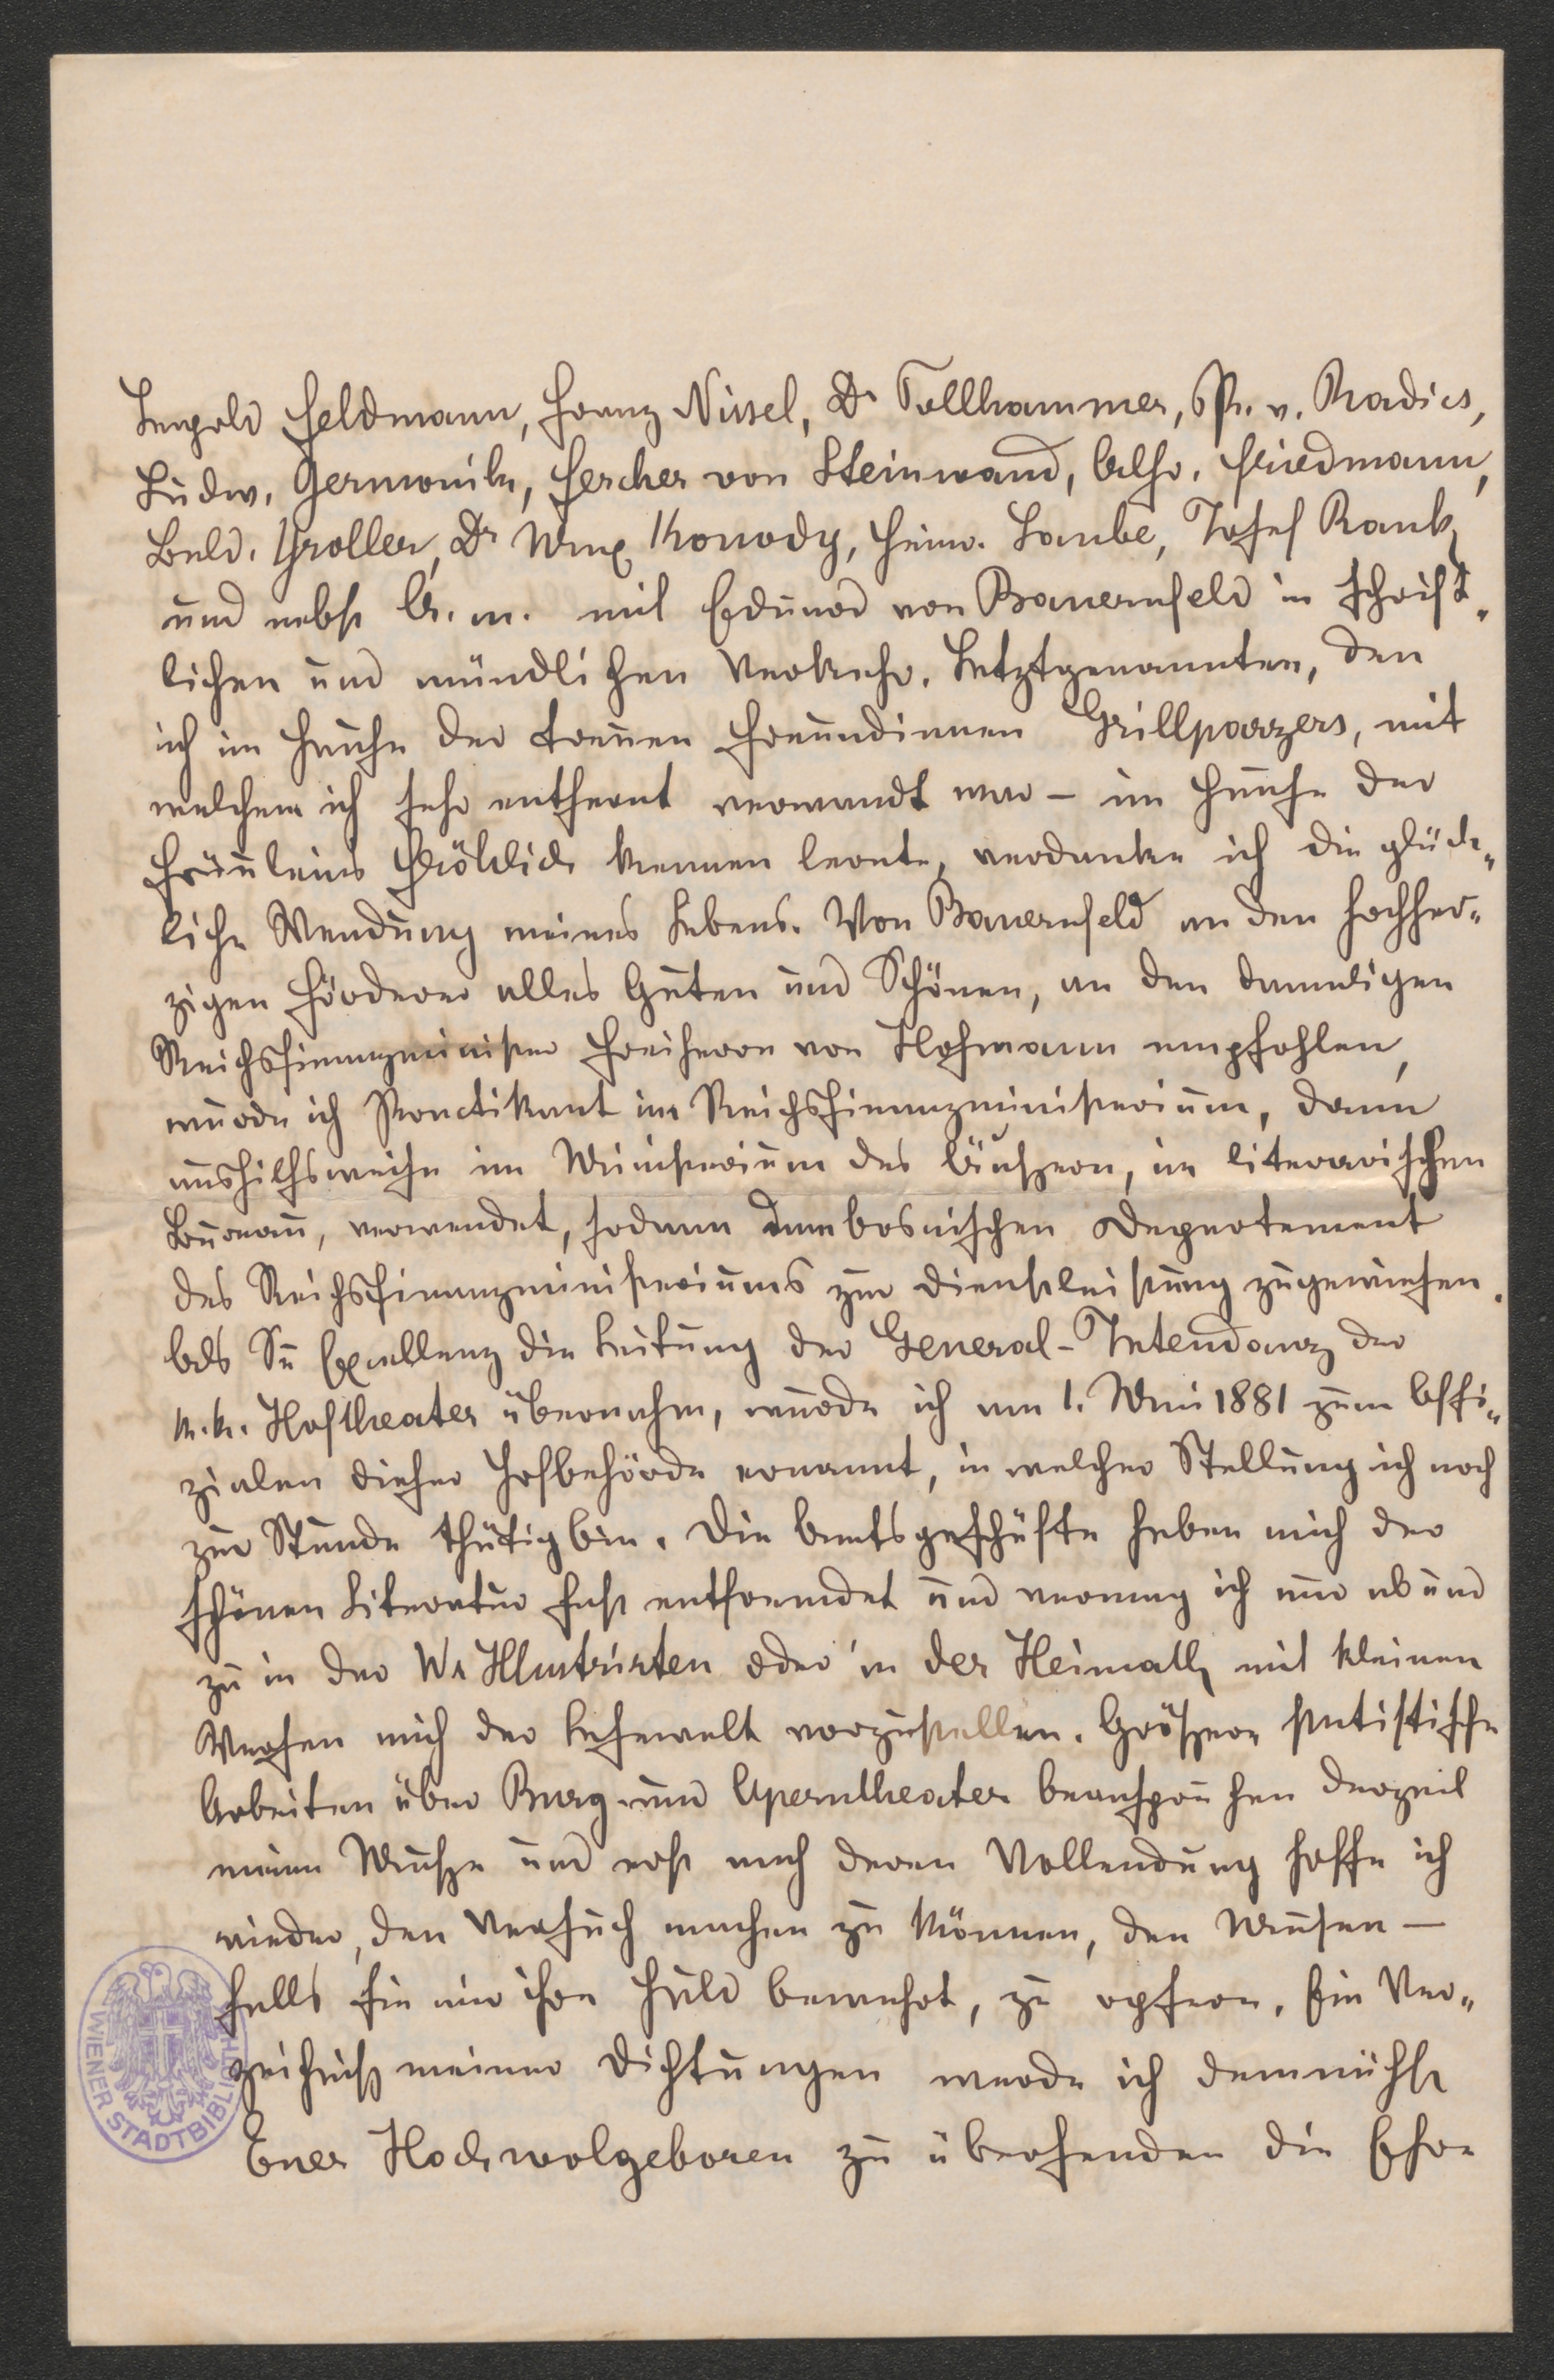 Leopold Feldmann, Franz Nissel, Dr Tollhammer, P. v. Radics,
Ludw. Germonik, Fercher von Steinwand, Alfr. Friedmann,
Bald. Groller, Dr Max Konody, Heinr. Laube, Josef Rank
und nebst A. m. mit Eduard von Bauernfeld in schrift-
lichen und mündlichen Verkehr. Letztgenannten, den
ich im Hause der treuen Freundinnen Grillparzers, mit
welchem ich sehr entfernt verwandt war – im Hause der
Fräuleins Fröhlich kennen lernte, verdanke ich die glück-
liche Wendung meines Lebens. Von Bauernfeld an den hochher-
zigen Förderer alles Guten und Schönen, an den damaligen
Reichsfinanzminister Freiherrn von Hofmann empfohlen,
wurde ich Practikant im Reichsfinanzministerium, dann
aushilfsweise im Ministerium des Äußern, im literarischen
Bureau, verwendet, sodann dem bosnischen Departement
des Reichsfinanzministeriums zur Dienstleistung zugewiesen.
Als Se Excellenz die Leitung der General-Intendanz der
k. k. Hoftheater übernahm, wurde ich am 1. Mai 1881 zum Offi-
zialen dieser Hofbehörde ernannt, in welcher Stellung ich noch
zur Stunde thätig bin. Die Amtsgeschäfte haben mich der
schönen Literatur fast entfremdet und vermag ich nur ab und
zu in der Wr Illustrirten oder in der Heimath mit kleinen
Versen mich der Lesewelt vorzustellen. Größere statistische
Arbeiten über Burg- und Operntheater beanspruchen derzeit
meine Muße und erst nach deren Vollendung hoffe ich
wieder, den Versuch machen zu können, den Musen –
falls sie mir ihre Huld bewahrt, zu opfern. Ein Ver-
zeichniß meiner Dichtungen werde ich demnächst
Euer Hochwolgeboren zu übersenden die Ehre
WIENER STADTBIBLIOTHEK